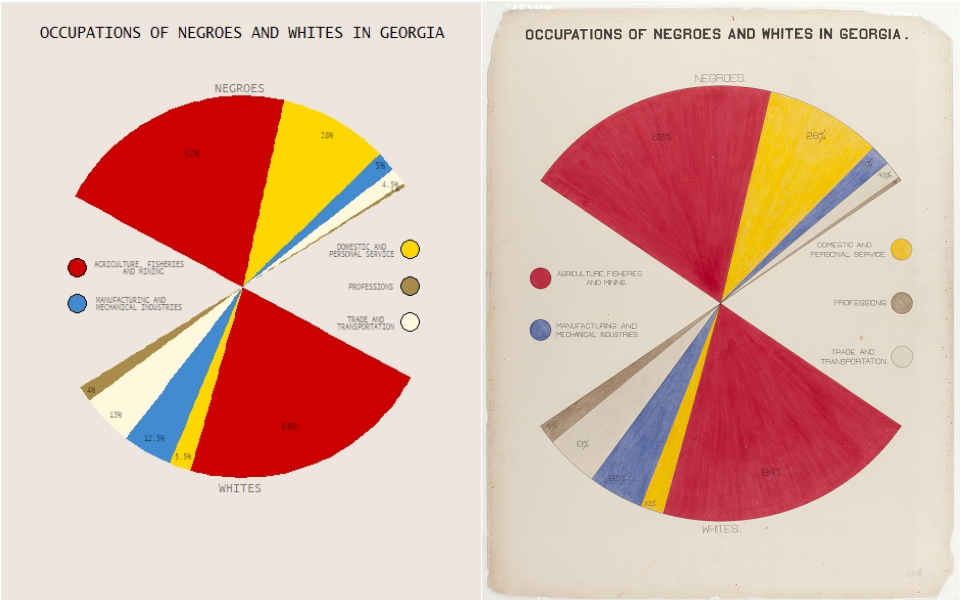 OCCUPATIONS OF NEGROES AND WHITES IN GEORGIA
NEGROES
62%
28%
5%
4.5%
AGRICULTURE, FISHERIES
AND MINING
MANUFACTURING AND
MECHANICAL INDUSTRIES
DOMESTIC AND
PERSONAL SERVICE
PROFESSIONS
TRADE AND
TRANSPORTATION
4%
13%
12.5%
5.5%
64%
WHITES
OCCUPATIONS OF NEGROES AND WHITES IN GEORGIA.
NEGROES.
62%
28%
5%
AGRICULTURE, FISHERIES
AND MINING.
MANUFACTURING AND
MECHANICAL INDUSTRIES.
DOMESTIC AND
PERSONAL SERVICE.
PROFESSIONS.
TRADE AND
TRANSPORTATION.
4%
13%
5.5%
64%
WHITES.